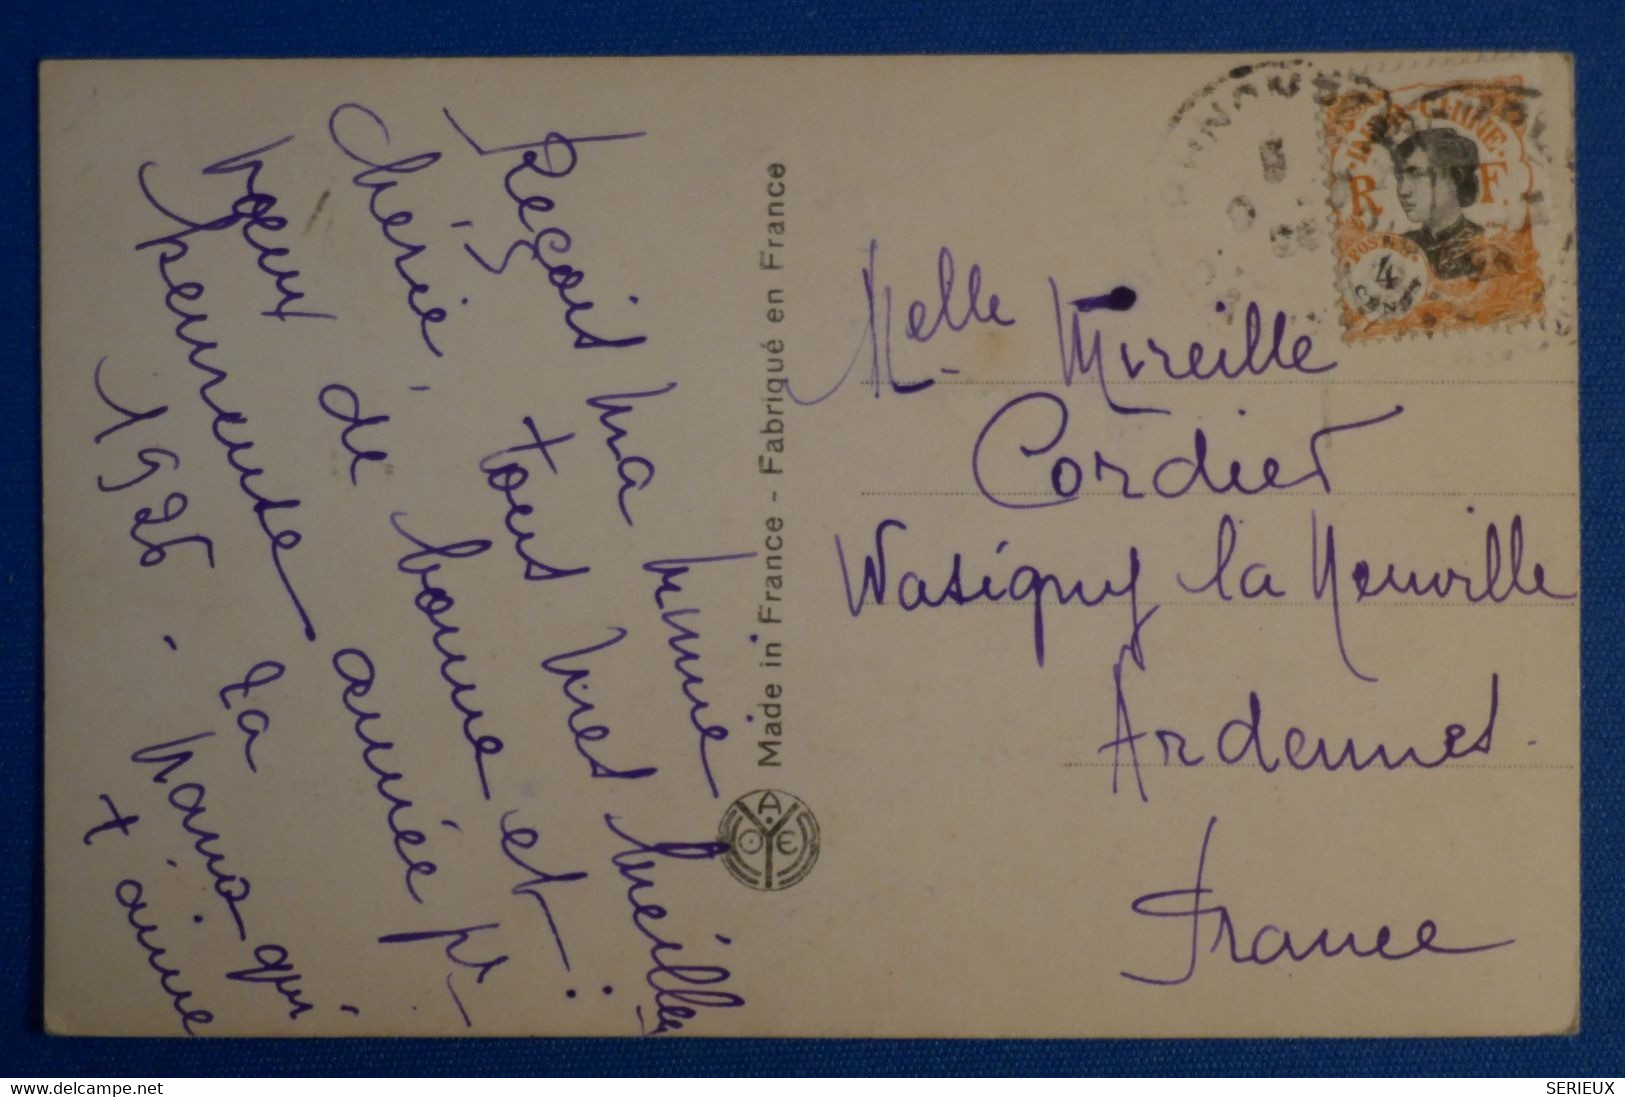 Reçois ma mimie
chérie, tous mes meilleurs
vœux de bonne et
heureuse année pr
1926. La
qui
t'aime
Made in France - Fabriqué en France
Melle Mireille
Cordier
Wasigny la Neuville
Ardennes.
France
INDOCHINE
R F
POSTES
4
CENTS
SERIEUX
www.delcampe.net